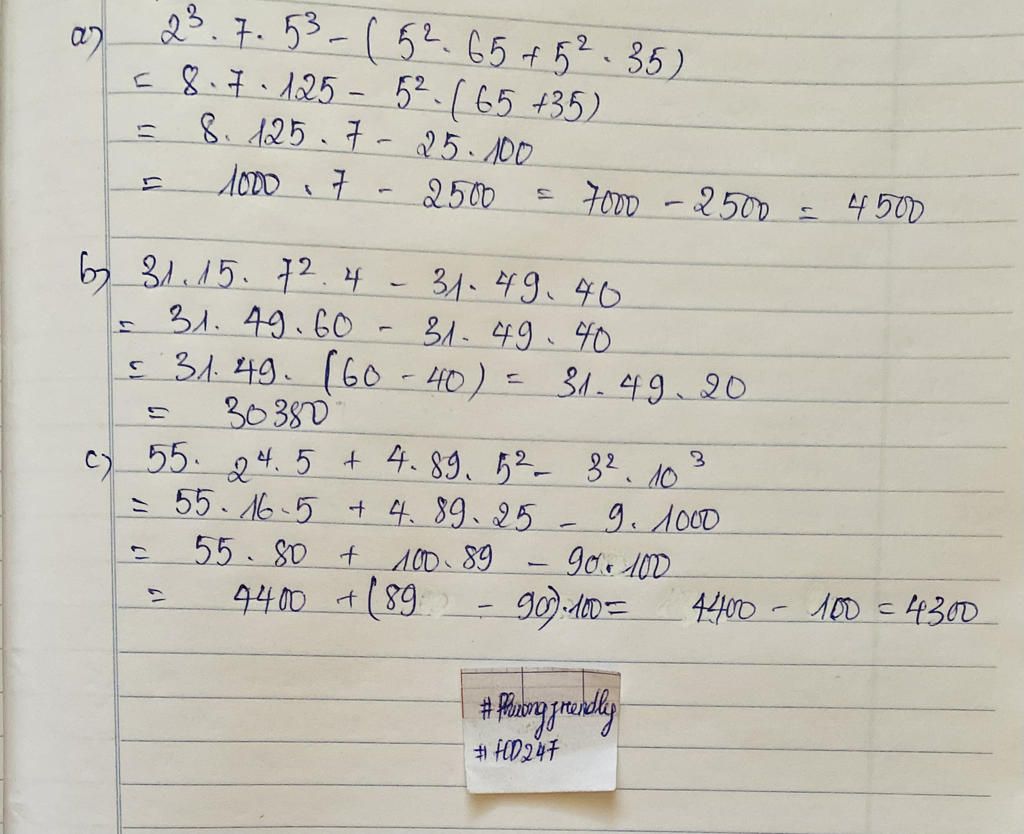 a) 2³ . 7 . 5³ - ( 5² . 65 + 5² . 35 )
= 8 . 7 . 125 - 5² . ( 65 + 35 )
= 8 . 125 . 7 - 25 . 100
= 1000 . 7 - 2500 = 7000 - 2500 = 4500
b) 31 . 15 . 7² . 4 - 31 . 49 . 40
= 31 . 49 . 60 - 31 . 49 . 40
= 31 . 49 . ( 60 - 40 ) = 31 . 49 . 20
= 30380
c) 55 . 2⁴ . 5 + 4 . 89 . 5² - 3² . 10³
= 55 . 16 . 5 + 4 . 89 . 25 - 9 . 1000
= 55 . 80 + 100 . 89 - 90 . 100
= 4400 + ( 89 - 90 ) . 100 = 4400 - 100 = 4300
#Phuongfriendly